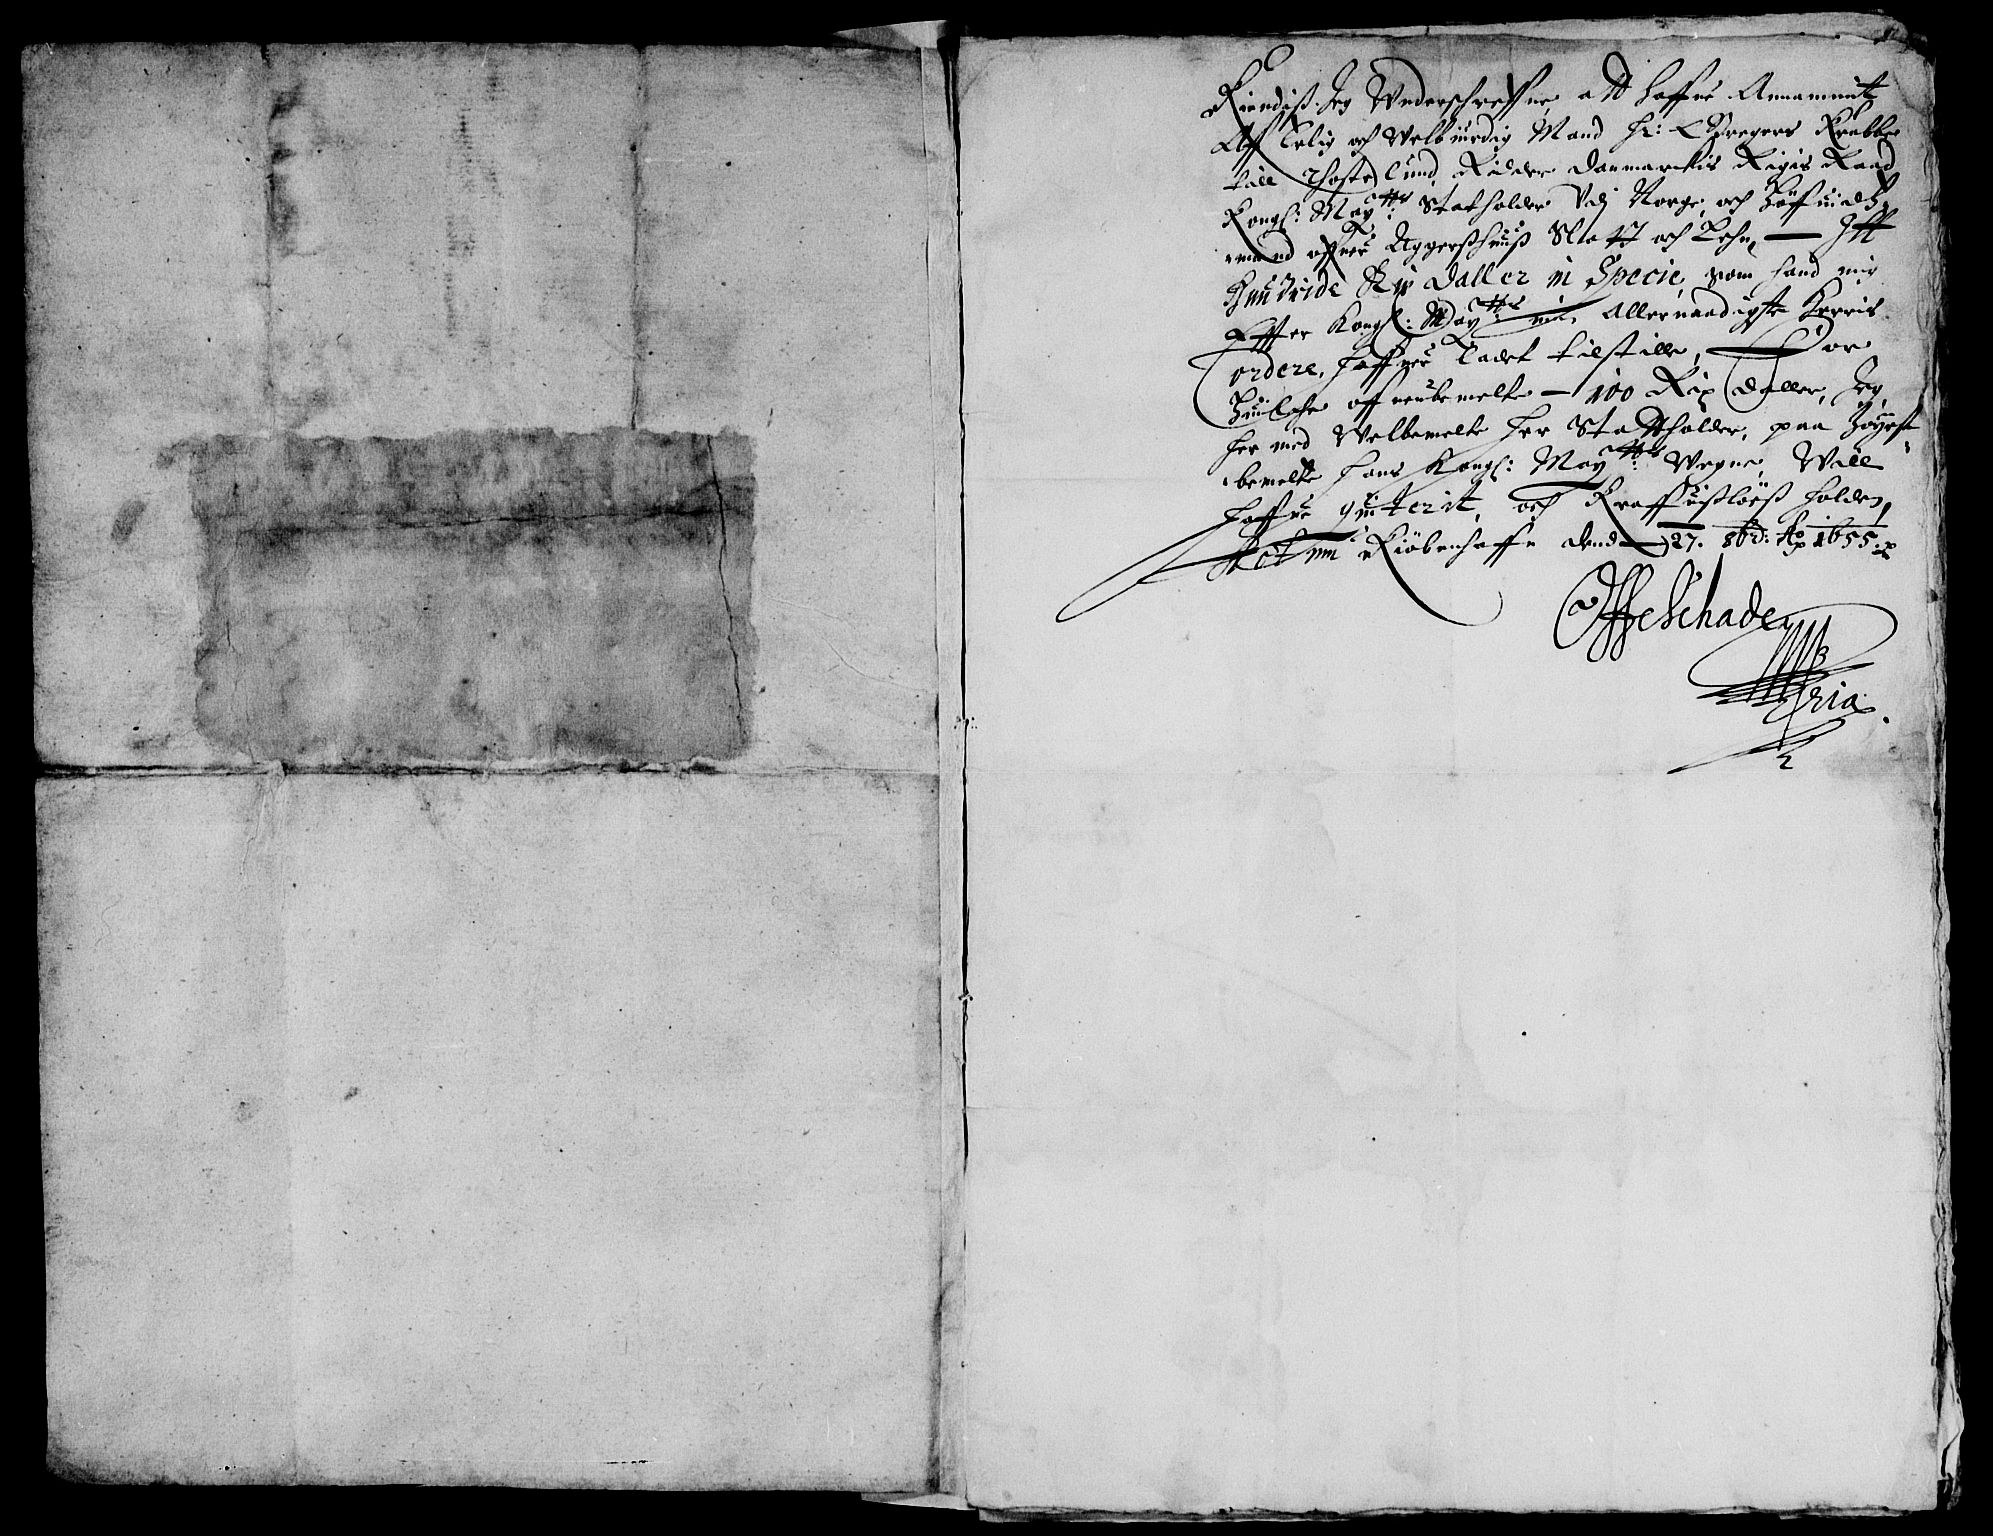 Kiendis Jeg Underschreffne att haffue Annammit
Aff Erlig och Velbiurdig Mand Hr: Gregers Krabbe
till Thostelund, Ridder Danmarckis Rigis Raad
Kongl: May:tts Statholder Vdj Norge, och Höffuidtz,
mand offuer Aggershuuss Slott och Lehn, — Itt
Hundride Rix Daller in Specie, som hand mig
Effter Kongl: May:tts min Allernaadigste Herris
ordere, haffuer Ladet tilstille, — For
Huilche offuenbemelte — 100 Rix Daller, Jeg,
her med Velbemelte Her Stattholder, paa Høyest
bemelte Hans Kongl: May:tts Vegne, Will
haffue quiterit, och Kraffuisløess holden,
Actum Kiöbenhaffn dend — 27. 8b: Ao 1655.
Offe Schade
Mpria.